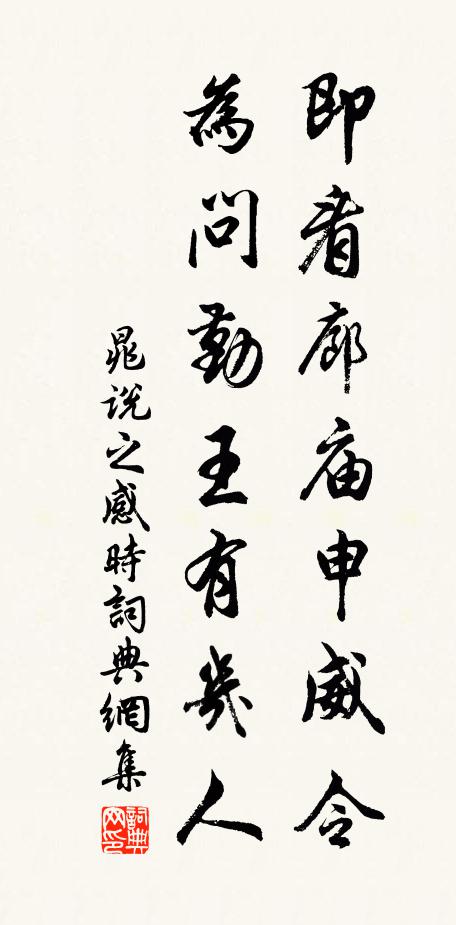 即看廊庙申威令
為問勤王有幾人
晁说之感時詞典網集
詞典网印